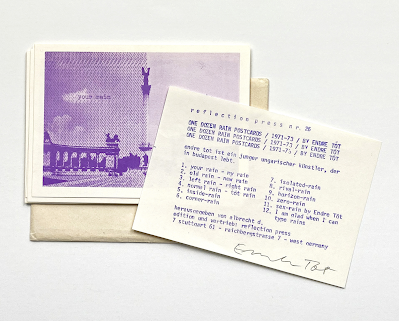 your rain
reflection press nr. 26
ONE DOZEN RAIN POSTCARDS / 1971-73 / BY ENDRE TÓT
ONE DOZEN RAIN POSTCARDS / 1971-73 / BY ENDRE TÓT
ONE DOZEN RAIN POSTCARDS / 1971-73 / BY ENDRE TÓT
endre tót ist ein junger ungarischer künstler, der
in budapest lebt.
1. your rain - my rain
2. old rain - new rain
3. left rain - right rain
4. normal rain - tót rain
5. inside-rain
6. corner-rain
7. isolated-rain
8. rival-rain
9. horizon-rain
10. zero-rain
11. sex-rain by Endre Tót
12. I am glad when I can
type rains
herausgegeben von albrecht d.
edition und vertrieb: reflection press
7 stuttgart 61 - reichbergstrasse 7 - west germany
Endre Tót